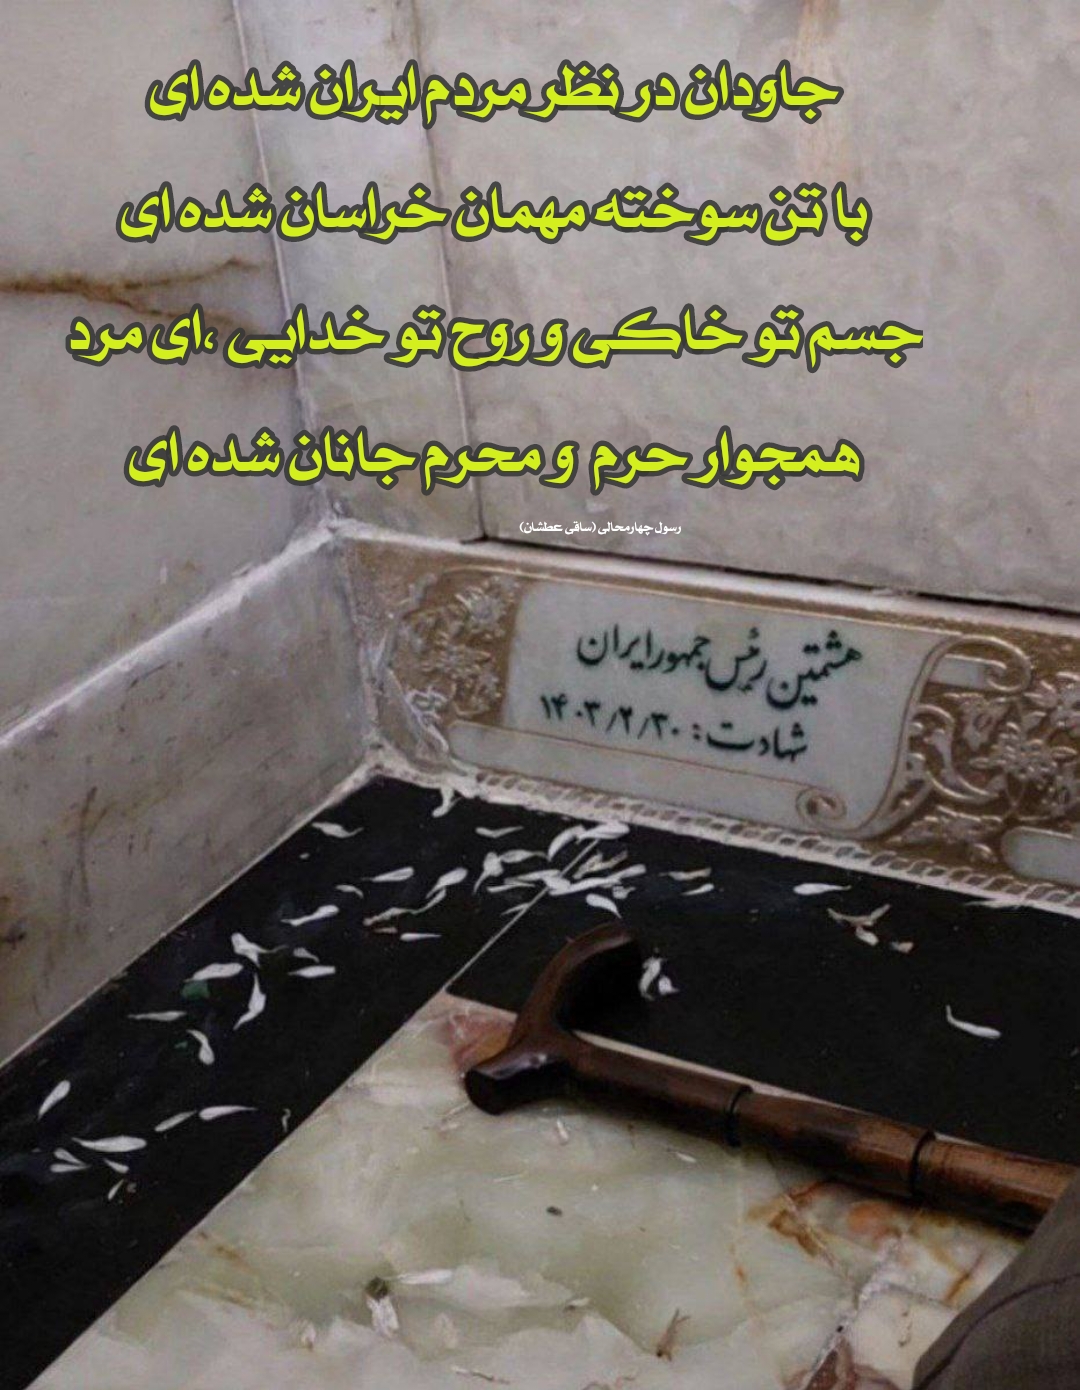 جاودان در نظر مردم ایران شده ای
با تن سوخته مهمان خراسان شده ای
جسم تو خاکی و روح تو خدایی ،ای مرد
همجوار حرم و محرم جانان شده ای
رسول چهارمحالی (ساقی عطشان)
هشتمین رئیس جمهور ایران
شهادت: ۱۴۰۳/۲/۳۰